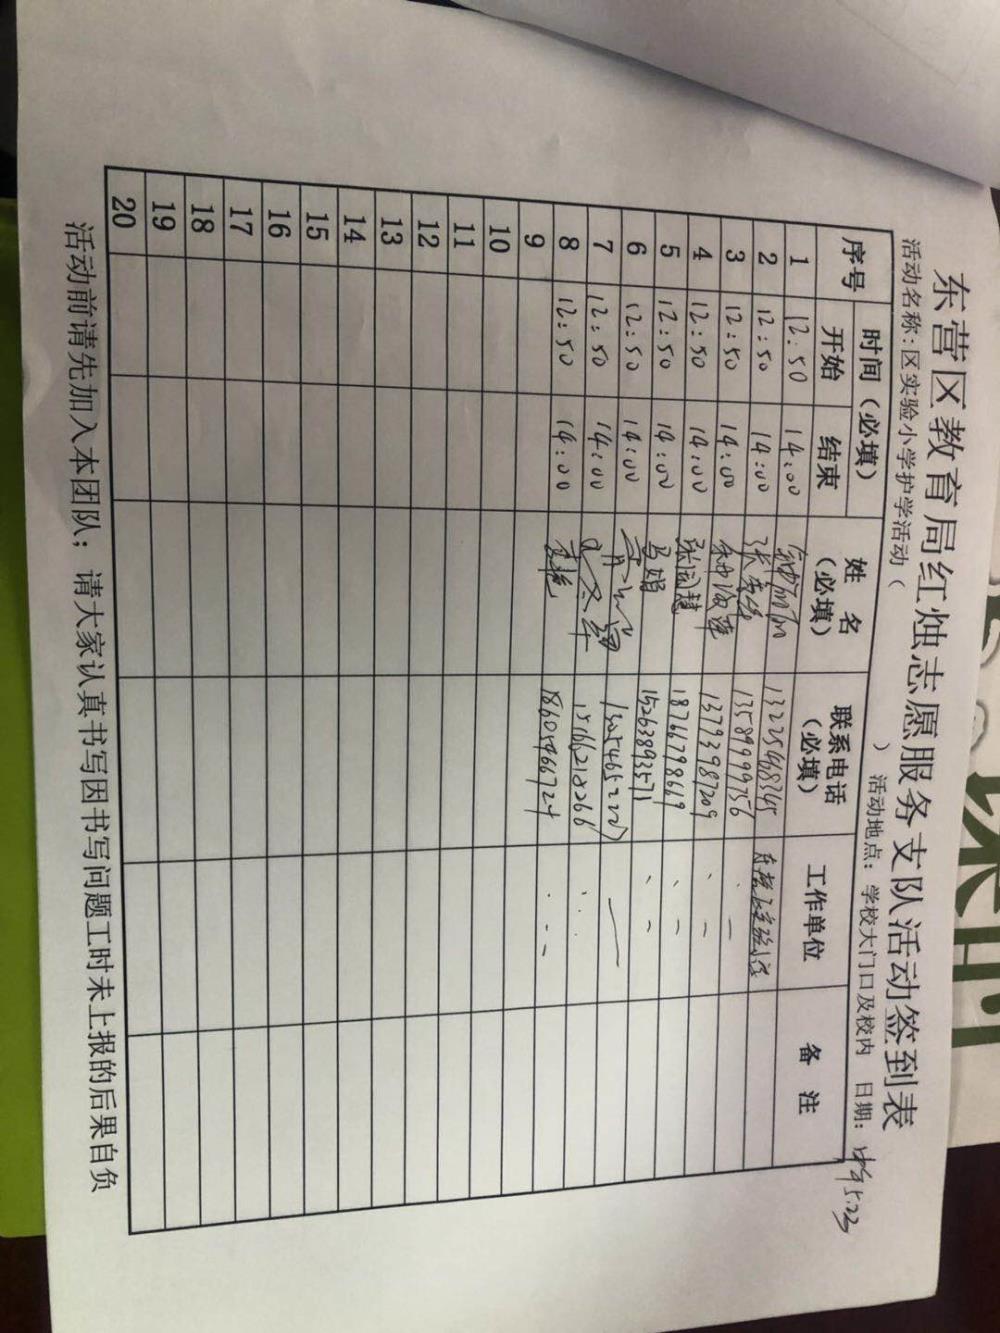 东营区教育局红烛志愿服务支队活动签到表
活动名称：区实验小学护学活动（ ） 活动地点：学校大门口及校内 日期： 5.23
序号 时间（必填） 姓名（必填） 联系电话（必填） 工作单位 备注
开始 结束
1 12:50 14:00 13225468345
2 12:50 14:00 13589999756
3 12:50 14:00 1379398709
4 12:50 14:00 张国慧 18766798669
5 12:50 14:00 马娟 15263893571
6 12:50 14:00
7 12:50 14:00
8 12:50 14:00 18605466724
9
10
11
12
13
14
15
16
17
18
19
20
活动前请先加入本团队；请大家认真书写因书写问题工时未上报的后果自负